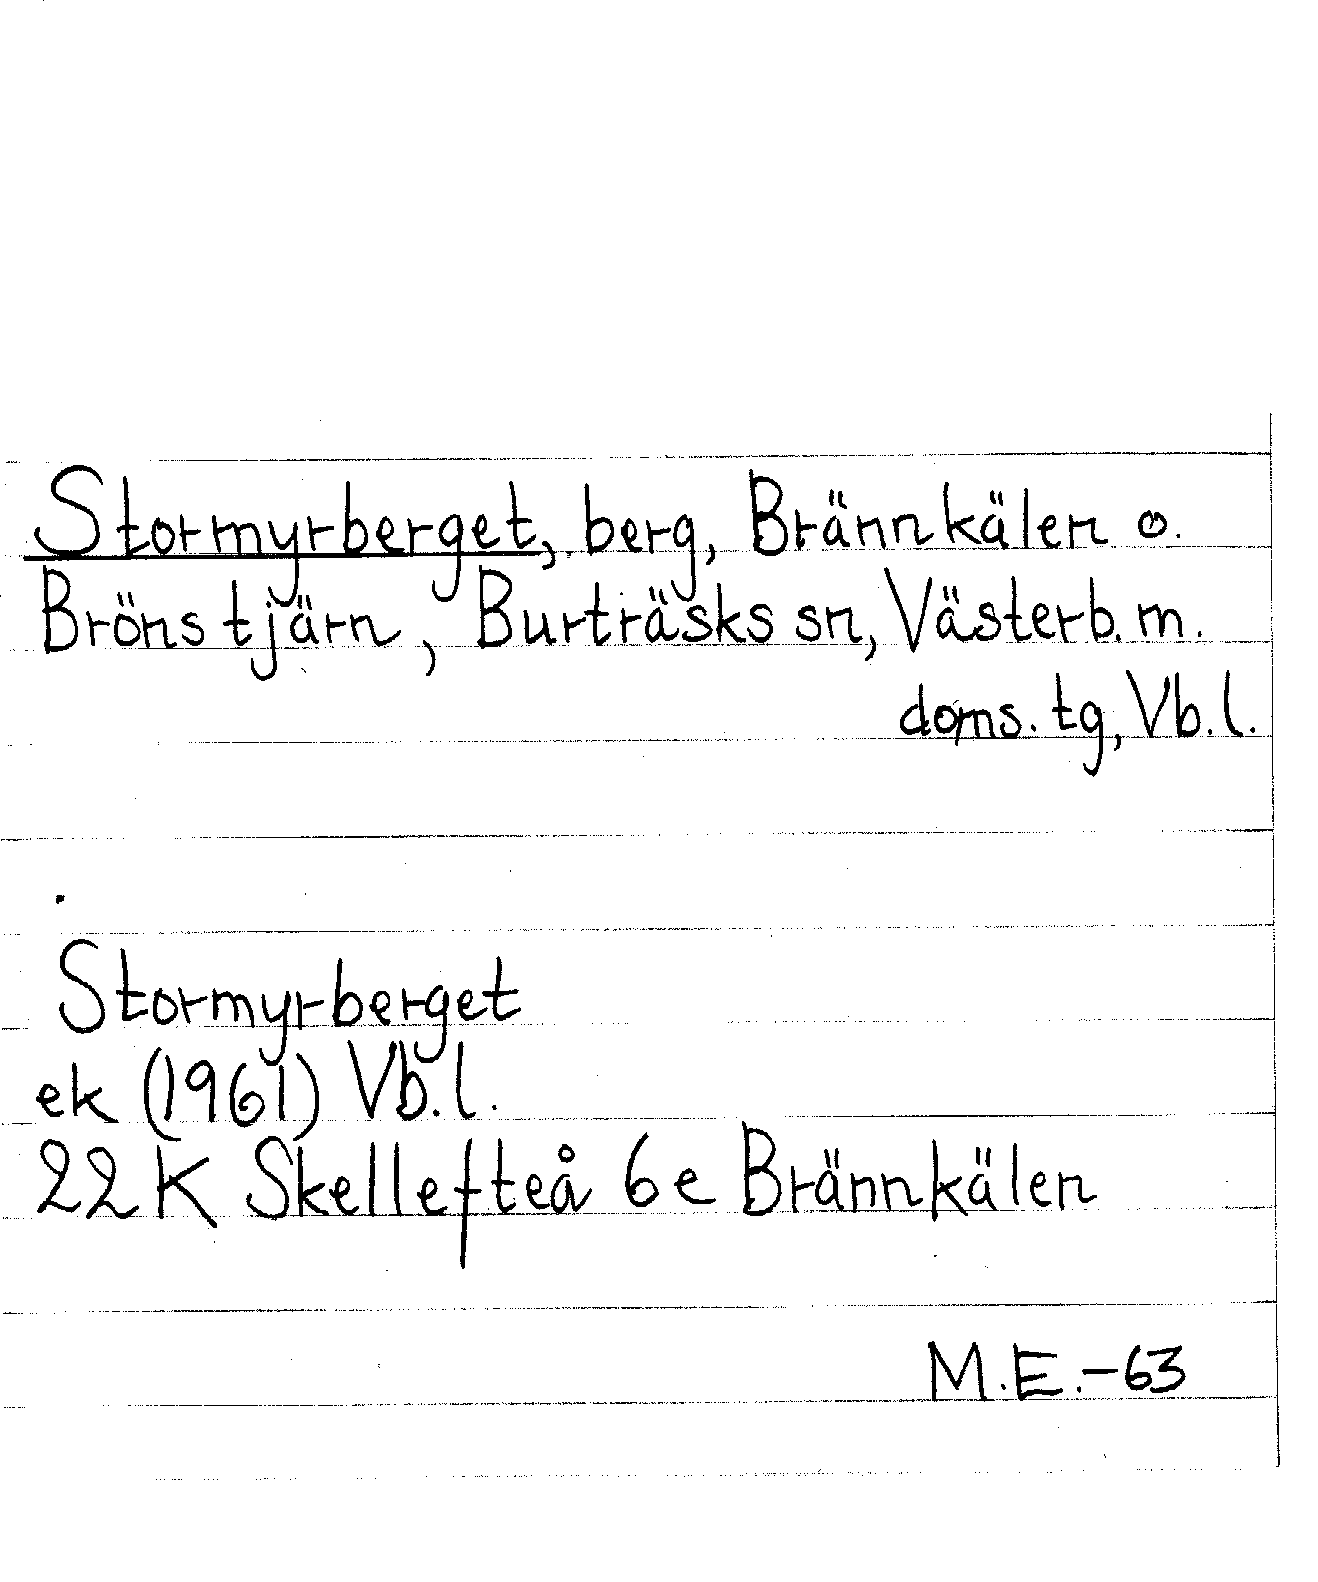 Stormyrberget, berg, Brännkälen o.
Brönstjärn, Burträsks sn, Västerb. m.
doms. tg, Vb. l.
Stormyrberget
ek (1961) Vb. l.
22 K Skellefteå 6e Brännkälen
M.E.-63